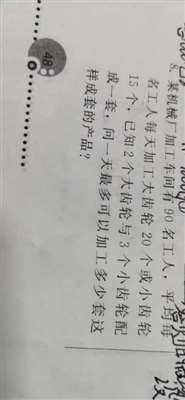 8. 某机械厂加工车间有 90 名工人，平均每
名工人每天加工大齿轮 20 个或小齿轮
15 个，已知 2 个大齿轮与 3 个小齿轮配
成一套，问一天最多可以加工多少套这
样成套的产品？
48